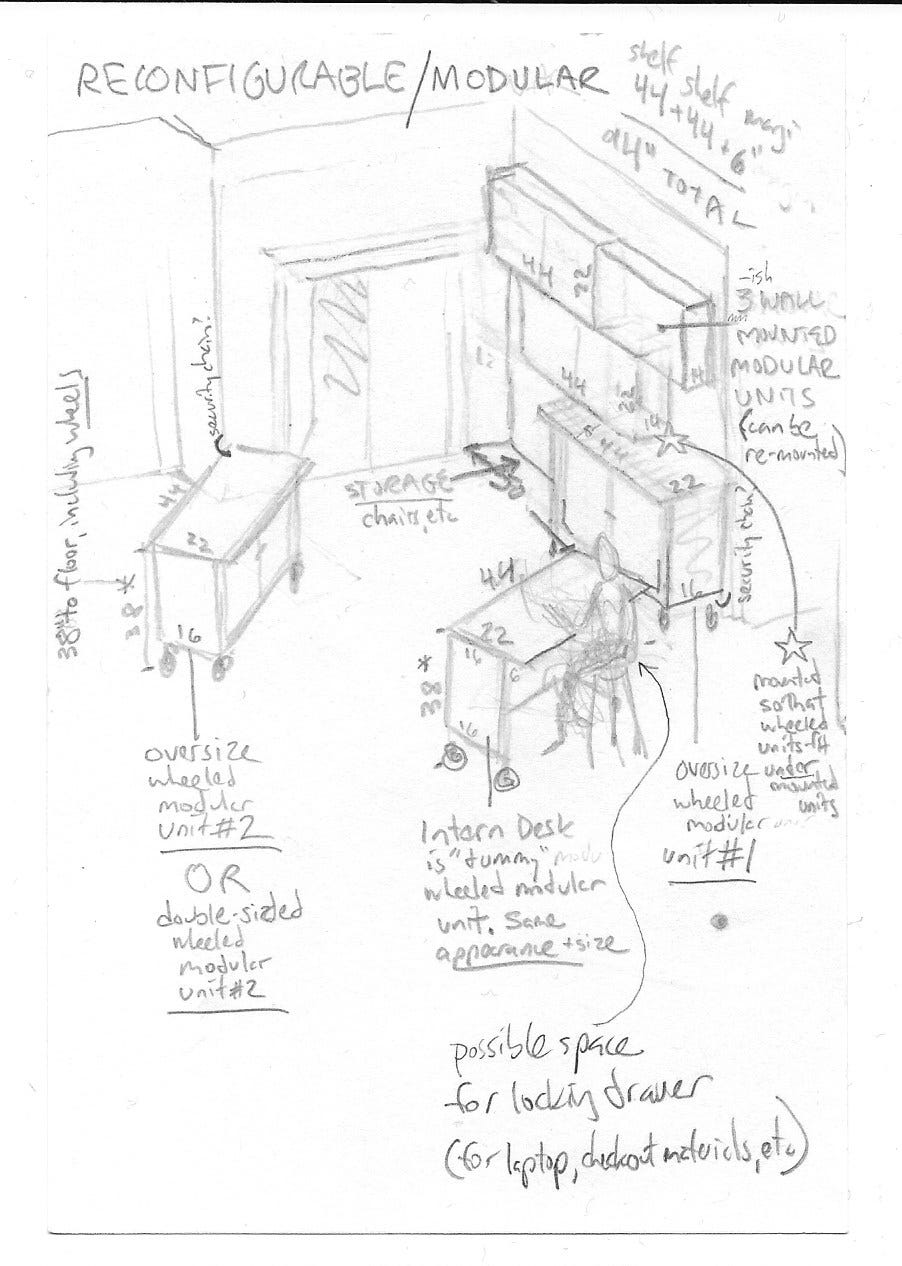 RECONFIGURABLE/MODULAR
shelf shelf
44+44+6"
94" TOTAL
44
22
-ish
3 WALL
MOUNTED
MODULAR
UNITS
(can be
re-mounted)
44
22
14
44
22
16
security chain?
security chain?
44
22
38 *
16
38" to floor, including wheels
STORAGE
chairs, etc
44
22
16
6
38 *
16
mounted
so that
wheeled
units fit
under
mounted
units
oversize
wheeled
modular
unit #2
OR
double-sized
wheeled
modular
unit #2
Intern Desk
is "dummy"
wheeled modular
unit. Same
appearance + size
oversize
wheeled
modular
unit #1
possible space
for locking drawer
(for laptop, checkout materials, etc)